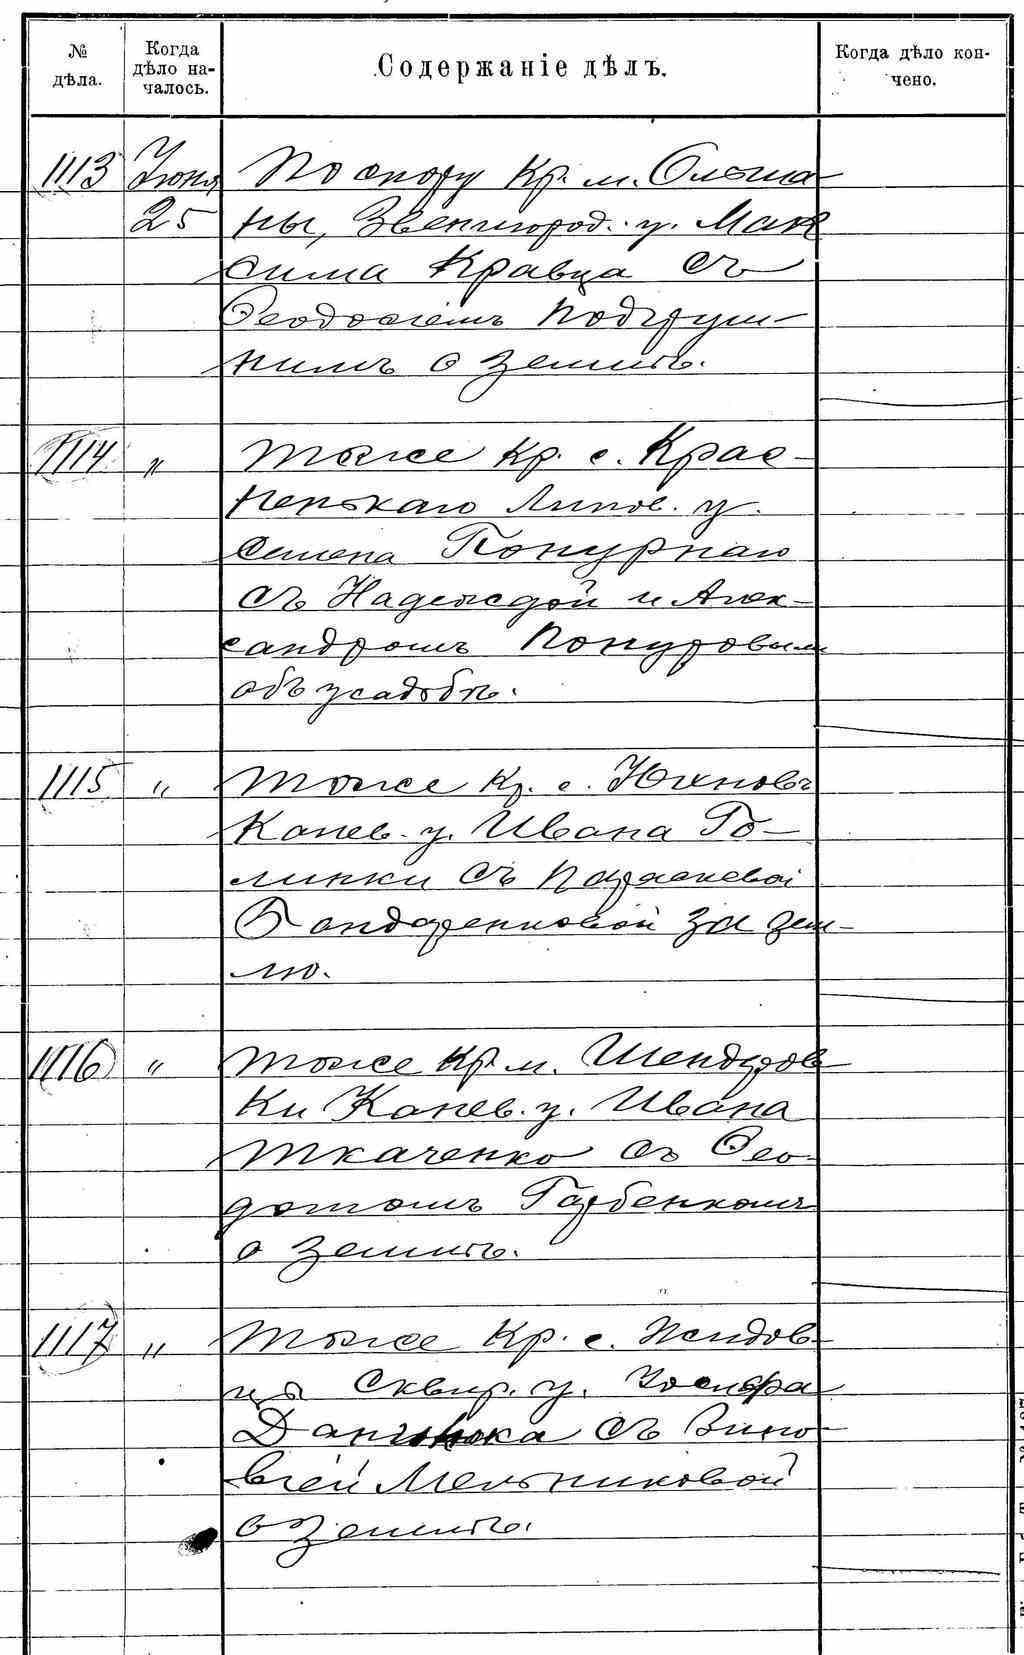 № дѣла.
Когда дѣло началось.
Содержаніе дѣлъ.
Когда дѣло кончено.
1113 Іюня По спору Кр. м. Ольша-
25 ны, Звенигород. у. Мак
сима Кравца съ
Ѳеодосіемъ Подгруш-
нимъ о землѣ.
1114 " тоже Кр. с. Крас-
ненькаго Липов. у.
Семена Понурнаго
съ Надеждой и Алек-
сандромъ Понуровыми
объ усадьбѣ.
1115 " тоже Кр. с. Юхновъ
Канев. у. Ивана Го-
линки съ Параскевой
Бондаренковой за зем-
лю.
1116 " тоже Кр. м. Шендеров
ки Канев. у. Ивана
Ткаченко съ Ѳео-
дотомъ Гарбенкомъ
о землѣ.
1117 " тоже Кр. с. Жидов-
цы Сквир. у. Іосифа
съ Зино-
віей Мельниковой
о землѣ.